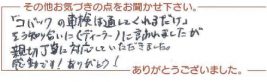 その他お気づきの点をお聞かせ下さい。
「コバックの車検は通してくれるだけ」
という知り合い(ディーラー)に言われましたが
親切丁寧に対応していただきました。
感動です！ありがとう！
ありがとうございました。